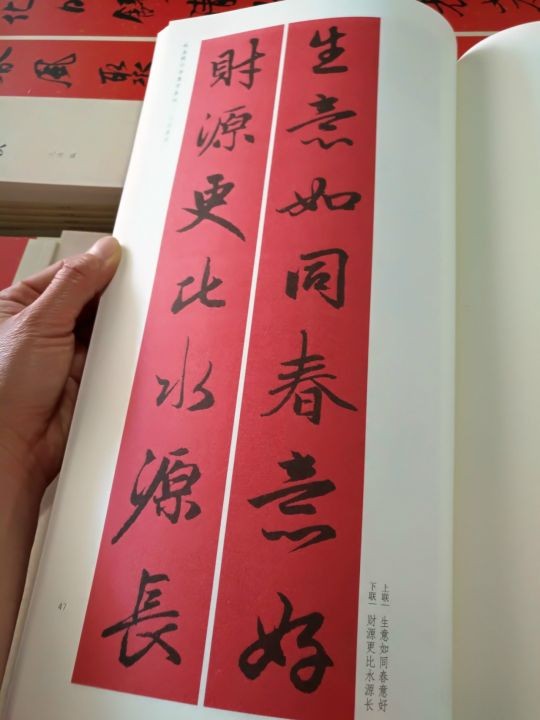 生意如同春意好
財源更比水源長
上联｜生意如同春意好
下联｜财源更比水源长
47
風聚